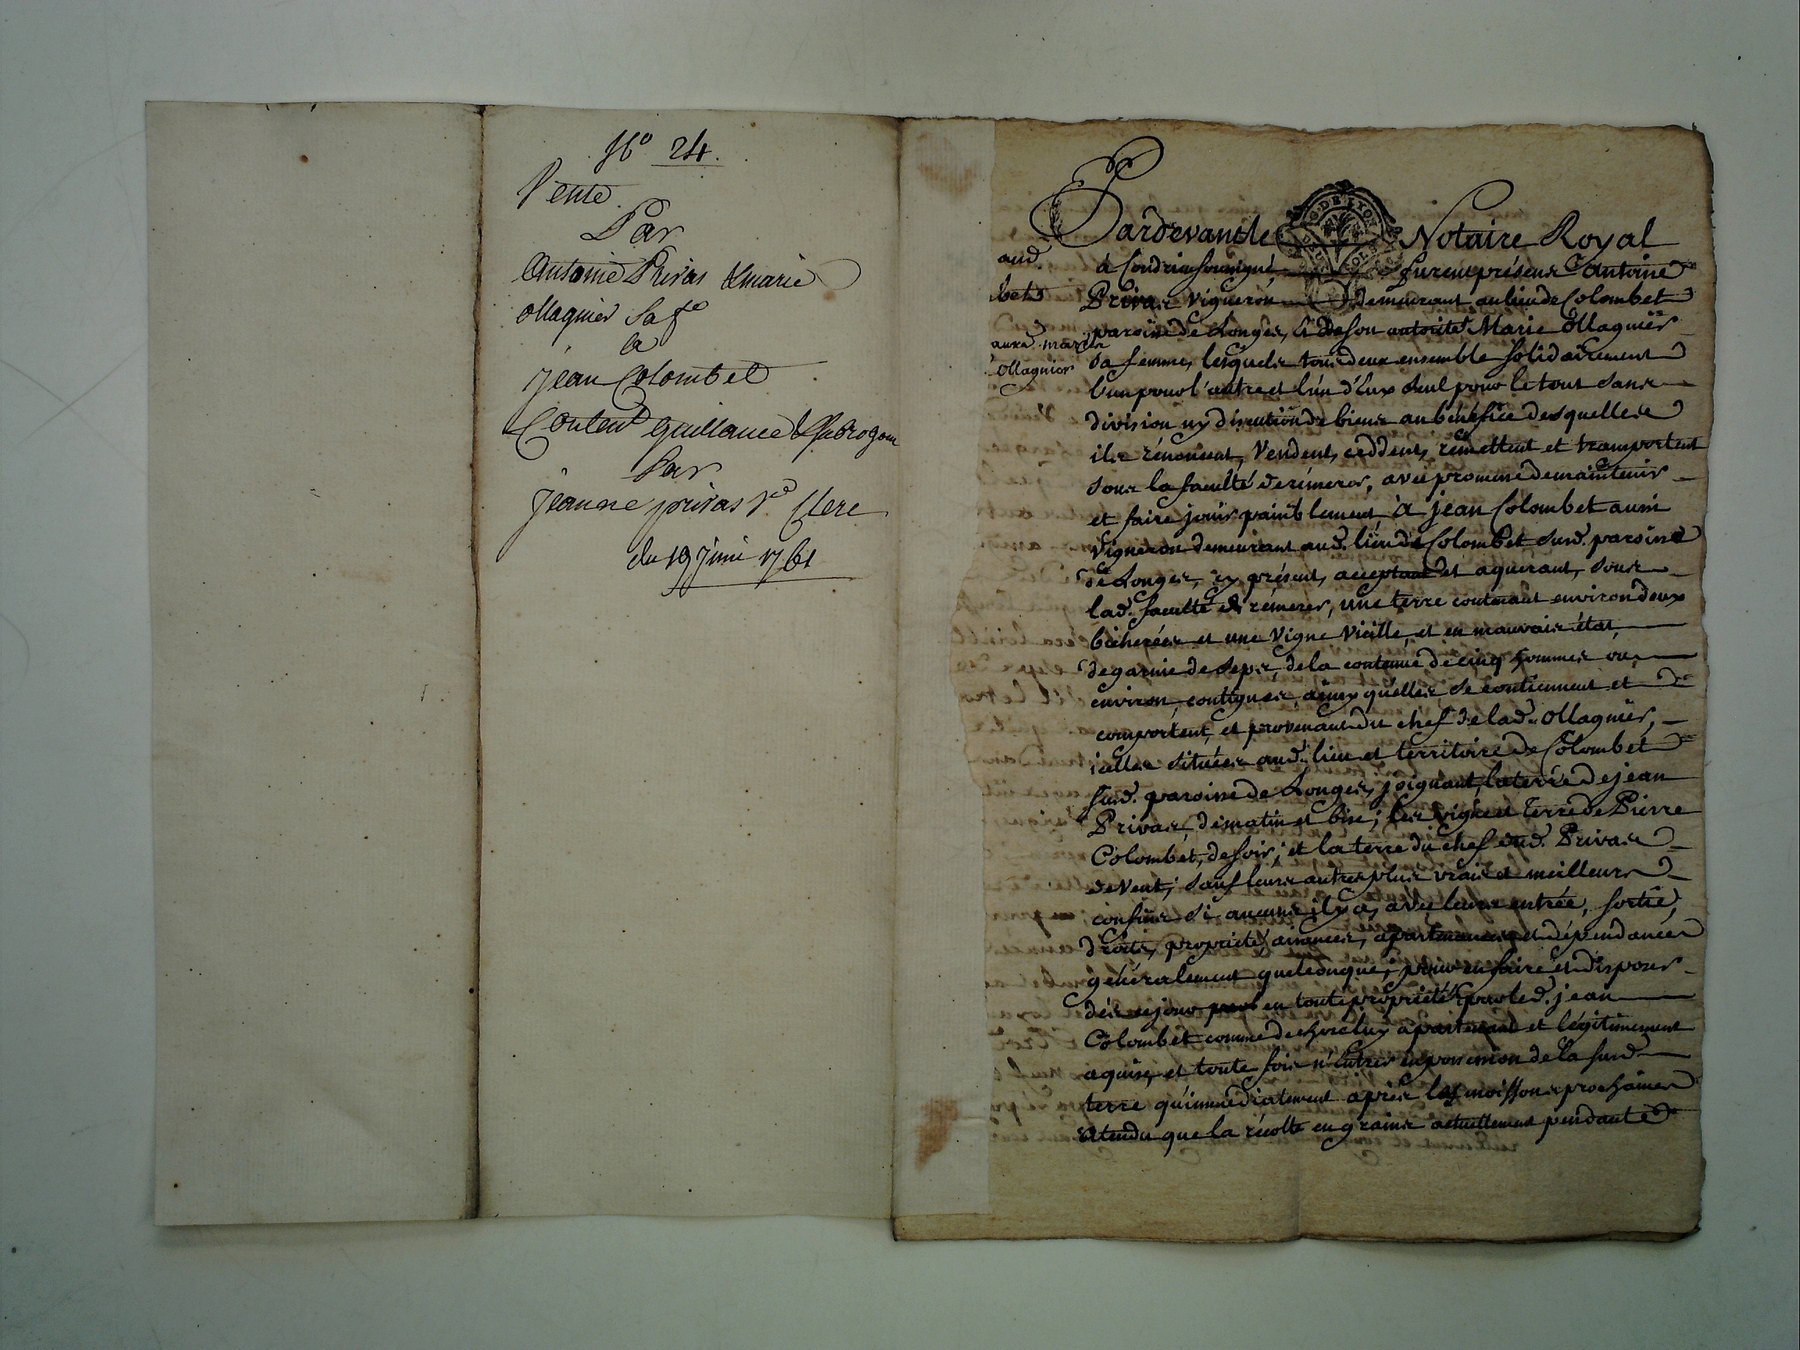 N° 24.
Vente
Par
Antoinè Privas & marie
ollagnier Sa fe
a
Jean Colombet
Conten^t quittance & Subrogaon
Par
Jeanne privas v^e Clerc
du 19 Juin 1761
Pardevant le Notaire Royal
à Condrieu soussigné furent présens Antoine
Privas vigneron demeurant au lieu de Colombet
paroisse de Longes, & de son autorité Marie Ollagnier
sa femme, lesquels tous deux ensemble solidairement
l'un pour l'autre et l'un d'Eux seul pour le tout sans
division ny discution de biens au bénéfice desquelles
ils rénoncent, Vendent, ceddent, remettent et transportent
sous la faculté de rémérer, avec promesse de maintenir
et faire jouir paisiblement à jean Colombet aussi
Vigneron demeurant aud. lieu de Colombet susd. paroisse
de Longes, icy présent, acceptant et aquerant, sous
lad. faculté de rémérer, une terre contenant environ deux
bicherées et une vigne vieille, et en mauvais état,
degarnie de seps, de la contenue de cinq hommes ou
environ, contigues, ainsy qu'elles se contiennent et
comportent, et provenant du chef de lad. Ollagnier,
icelles situées aud. lieu et territoire de Colombet
susd. paroisse de Longes, joignant, la terre de jean
Privas, de matin et bise; les vigne et terre de Pierre
Colombet, de soir; et la terre du chef dud. Privas
de vent; sauf leurs autres plus vrais et meilleurs
confins si aucuns il y a, avec leurs entrée, sortie,
droits, proprieté, aisances, apartenances et dépendances
généralement quelconque; pour en faire et disposer
dès ce jour en toute proprieté par led. jean
Colombet comme de chose luy apartenant et légitimement
aquise, et toute fois n'entrer en possession de la susd.
terre qu'immédiatement après les moissons prochaines
atendu que la récolte en grains actuellement pendante
aud.
bet
marie
Ollagnier